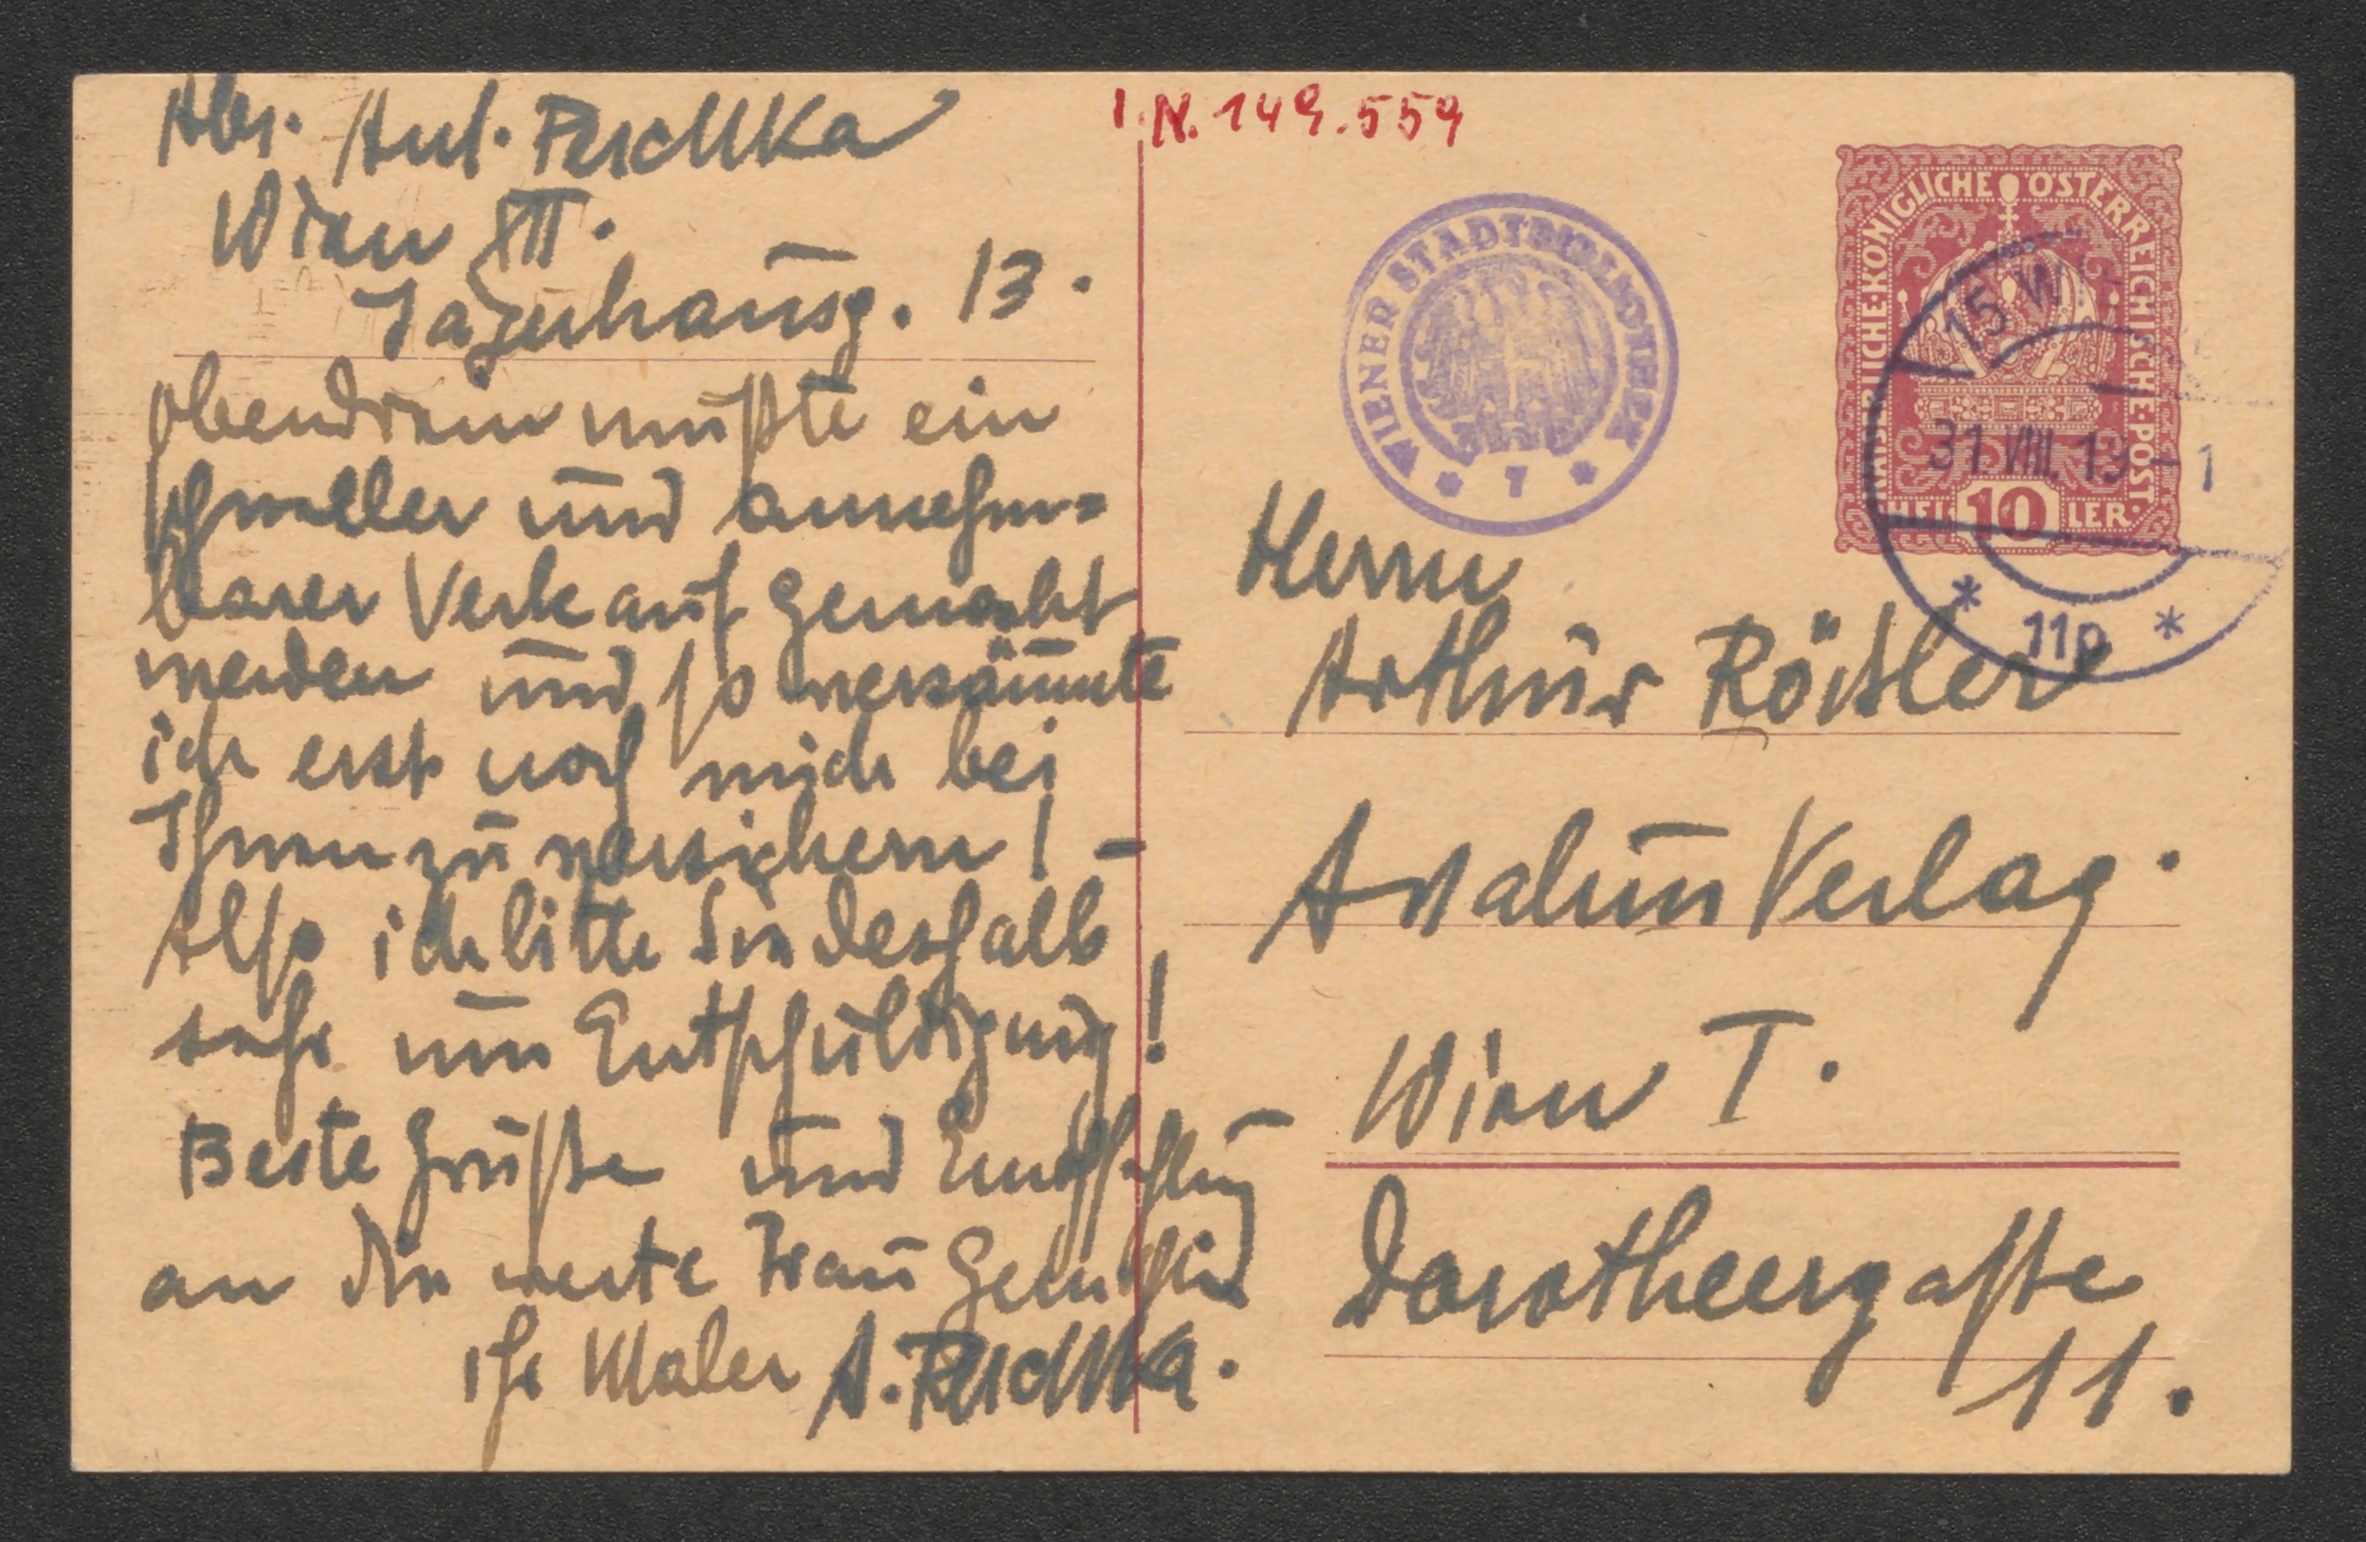 Abs. Ant. Peschka
Wien XII.
Jägerhausg. 13.
obendrein mußte ein
schneller und annehm-
barer Verkauf gemacht
werden und so versäumte
ich erst noch mich bei
Ihnen zu versichern! –
Also ich bitte Sie deshalb
sehr um Entschuldigung!
Beste Grüße und Empfehlung
an die werte Frau Gemahlin
Ihr Maler A. Peschka.
I.N. 149.559
WIENER STADTBIBLIOTHEK
* 7 *
KAISERLICHE·KÖNIGLICHE ÖSTERREICHISCHE·POST·
HELLER
10
15 W
31.VIII.19–1
* 11p *
Herrn
Arthur Rößler
Avalun Verlag.
Wien I.
Dorotheergasse
11.